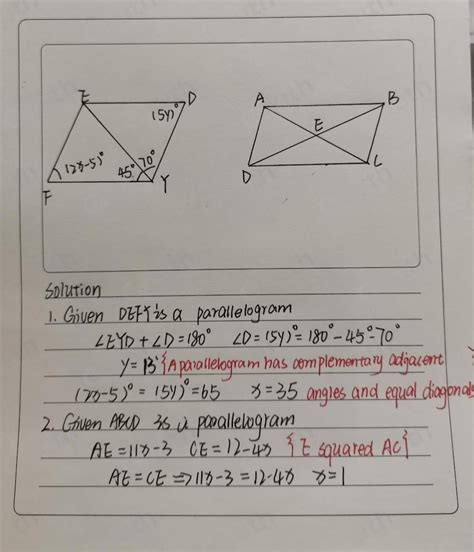 E D
(5y)°
(2x-5)° 45° 70°
F Y
A B
E
D C
Solution
1. Given DEFY is a parallelogram
∠EYD + ∠D = 180° ∠D = (5y)° = 180° - 45° - 70°
y = 13 {A parallelogram has complementary adjacent
(2x-5)° = (5y)° = 65 x = 35 angles and equal diagonals
2. Given ABCD is a parallelogram
AE = 11x - 3 CE = 12 - 4x {E squared AC}
AE = CE ⇒ 11x - 3 = 12 - 4x x = 1